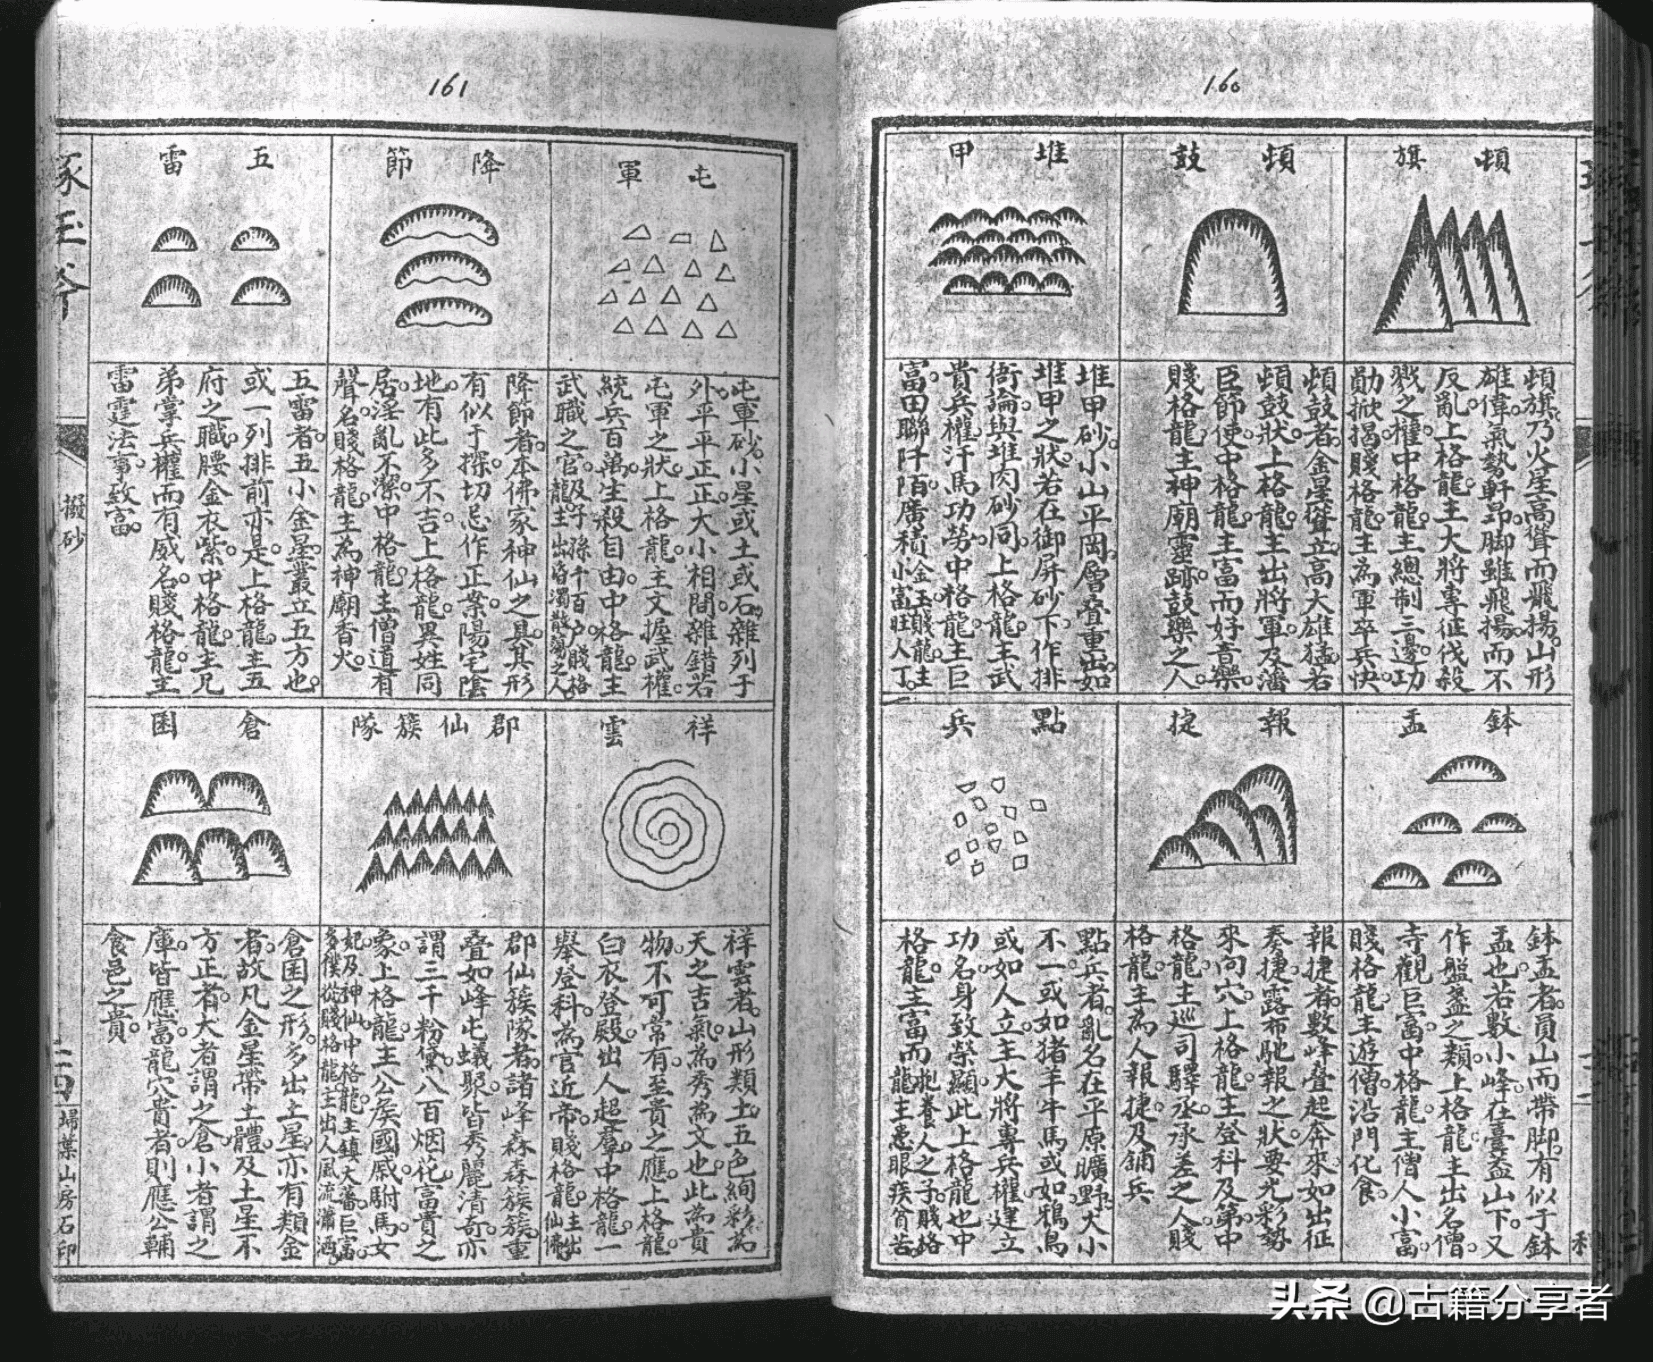 160
頓旗
頓旗乃火星高聳而飛揚山形
雄偉氣勢軒昂脚雖飛揚而不
反亂上格龍主大將專征伐殺
戮之權中格龍主總制三邊功
勛掀揭賤格龍主為軍卒兵快
頓鼓
頓鼓者金星聳立高大雄猛若
頓鼓狀上格龍主出將軍及藩
臣節使中格龍主富而好音樂
賤格龍主神廟靈跡鼓樂之人
堆甲
堆甲砂小山平岡層疊重出如
堆甲之狀若在御屏砂下作排
衙論與堆肉砂同上格龍主武
貴兵權汗馬功勞中格龍主巨
富田聯阡陌廣積金玉賤龍主
小富旺人丁
鉢盂
鉢盂者員山而帶脚有似于鉢
盂也若數小峰在臺葢山下又
作盤盞之類上格龍主出名僧
寺觀巨富中格龍主僧人小富
賤格龍主遊僧沿門化食
報捷
報捷者數峰疊起奔來如出征
奏捷露布馳報之狀要尤彩勢
來向穴上格龍主登科及第中
格龍主巡司驛丞承差之人賤
格龍主為人報捷及鋪兵
點兵
點兵者亂名在平原曠野大小
不一或如猪羊牛馬或如鴉鳥
或如人立主大將專兵權建立
功名身致榮顯此上格龍也中
格龍主富而抱養人之子賤格
龍主患眼疾貧苦
161
屯軍
屯軍砂小星或土或石雜列于
外平平正正大小相間雜錯若
屯軍之狀上格龍主文握武權
統兵百萬生殺自由中格龍主
武職之官及子孫千百户賤格
龍主出昏濁散蕩之人
降節
降節者本佛家神仙之具其形
有似于探切忌作正案陽宅陰
地有此多不吉上格龍異姓同
居淫亂不潔中格龍主僧道有
聲名賤格龍主為神廟香火
五雷
五雷者五小金星叢立五方也
或一列排前亦是上格龍主五
府之職腰金衣紫中格龍主兄
弟掌兵權而有威名賤格龍主
雷霆法事致富
祥雲
祥雲者山形類土五色絢彩為
天之吉氣為秀為文也此為貴
物不可常有至貴之應上格龍
白衣登殿出人超羣中格龍一
舉登科為官近帝賤格龍主出
仙佛
郡仙簇隊
郡仙簇隊者諸峰森森簇簇重
叠如峰屯蟻聚皆秀麗清奇亦
謂三千粉黛八百烟花富貴之
象上格龍主公矦國戚駙馬女
妃及神仙中格龍主鎮大藩巨富
多僕從賤格龍主出人風流瀟洒
倉囷
倉囷之形多出土星亦有類金
者故凡金星帶土體及土星不
方正者大者謂之倉小者謂之
庫皆應富龍穴貴者則應公輔
食邑之貴
琢玉斧
擬砂
三四
歸葉山房石印
头条 @古籍分享者